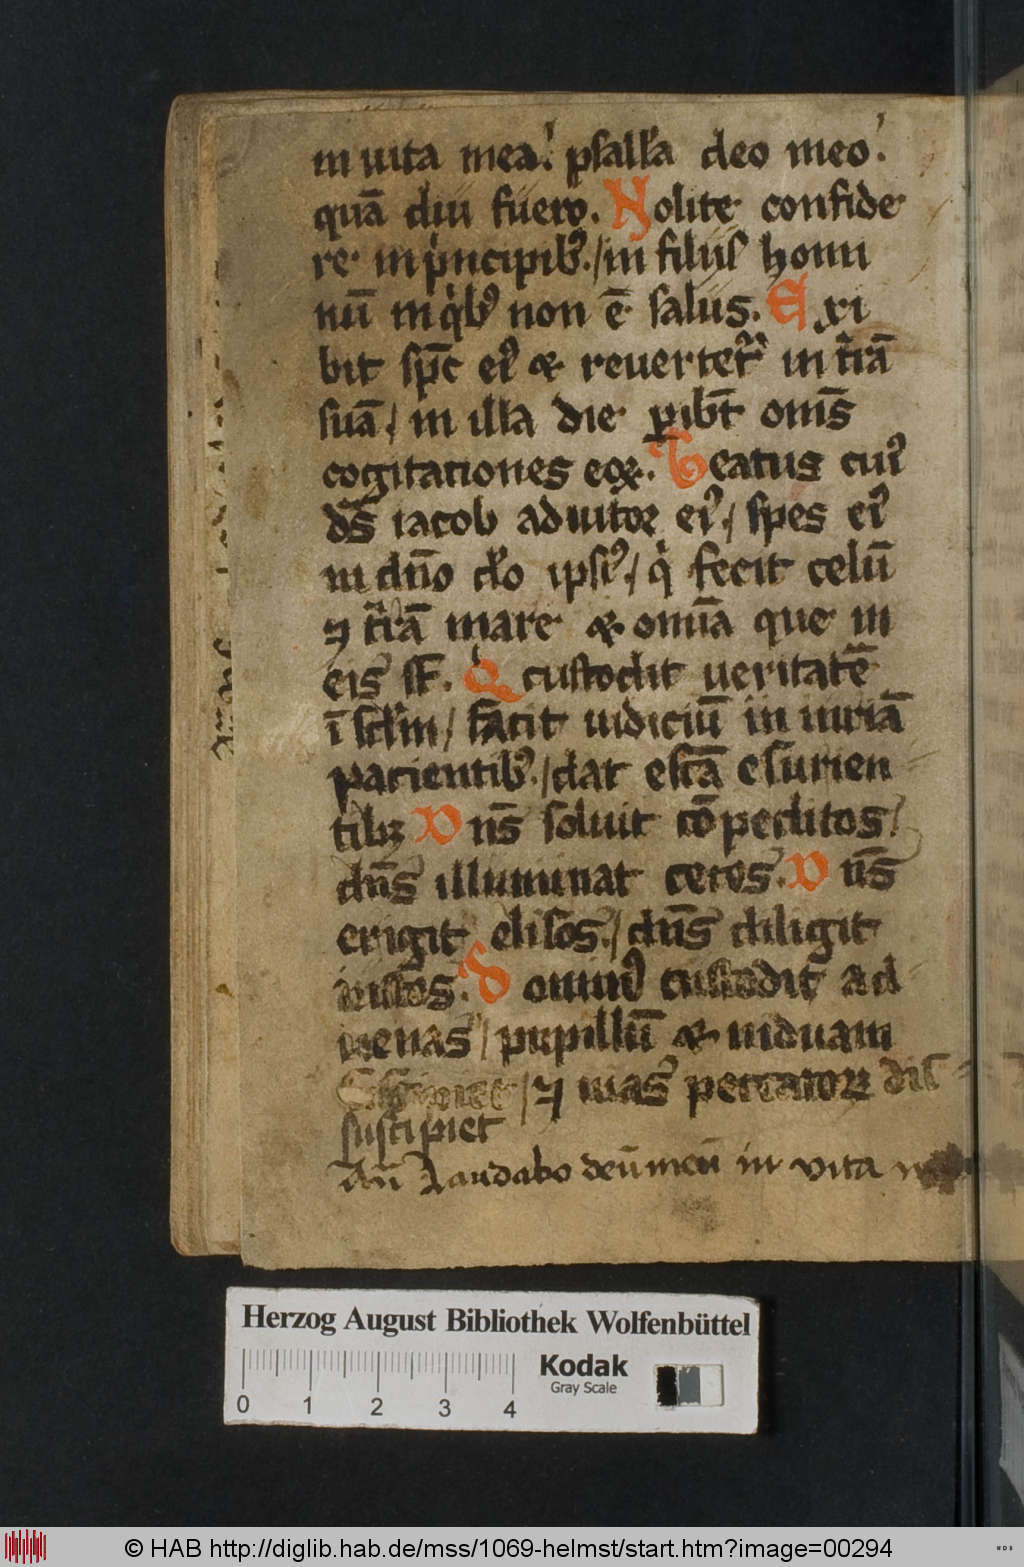 in uita mea. psallā deo meo.
quā diu fuero. Nolite confide
re in p̍ncipibꝰ./ in filiis homi
nū in q̍bꝰ non ē salus. Exi
bit sp̄c eiꝰ & reuertet᷑ in t̄rā
suā / in illa die ꝑibt̄ om̄s
cogitationes eoꝝ. Beatus cuiꝰ
ds̄ iacob adiutor eiꝰ./ spes eiꝰ
in dn̄o do ipsiꝰ./ q̍ fecit celū
⁊ t̄rā mare & omīa que in
eis st̄. Q̍ custodit ueritatē
ī scl̄m / facit iudiciū in iuriā
pacientibꝰ./ dat escā esurien
tibꝫ Dn̄s soluit cōpeditos /
dn̄s illuminat cecos. Dn̄s
erigit elisos./ dn̄s diligit
iustos. Dominꝰ custodit ad
uenas / pupillū & uiduam
suscipiet / ⁊ uias peccatorꝝ dis
suscipiet
An̄ Laudabo deū meū in vita
Herzog August Bibliothek Wolfenbüttel
0 1 2 3 4
Kodak
Gray Scale
© HAB http://diglib.hab.de/mss/1069-helmst/start.htm?image=00294